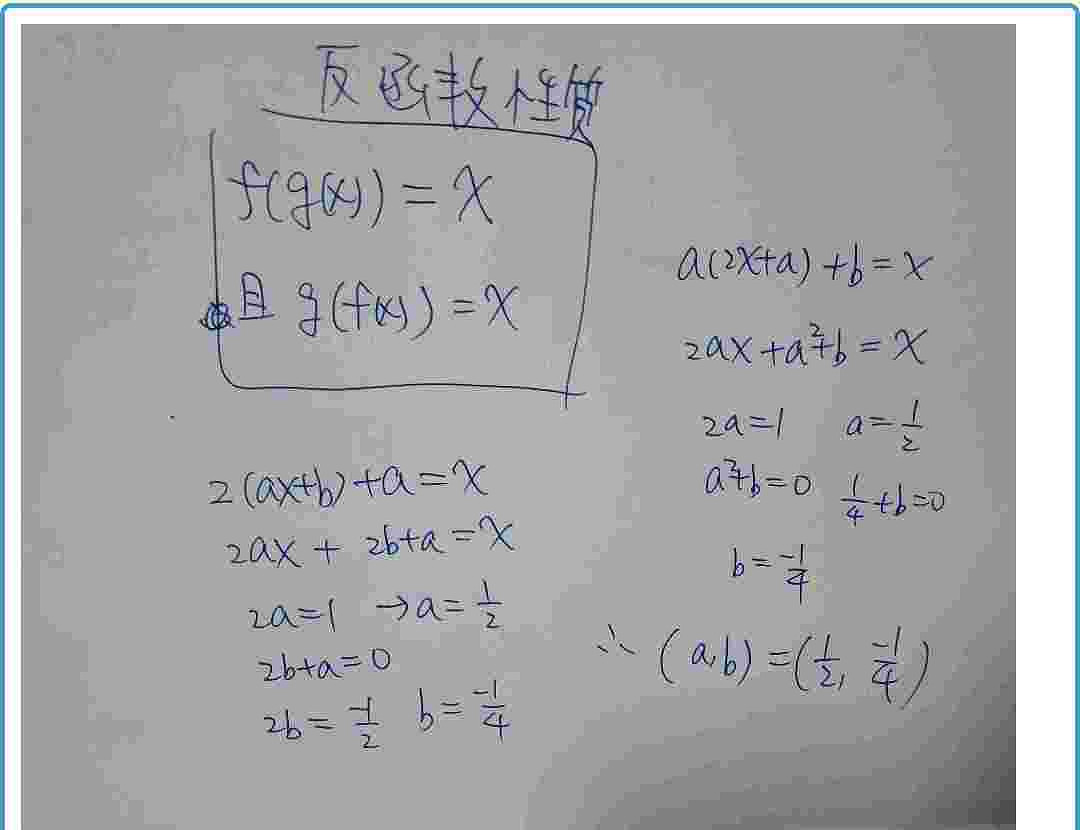 反函数性质
f(g(x)) = x
且 g(f(x)) = x
2(ax+b)+a=x
2ax + 2b+a=x
2a=1 →a=1/2
2b+a=0
2b=-1/2 b=-1/4
a(2x+a)+b=x
2ax+a²+b=x
2a=1 a=1/2
a²+b=0 1/4+b=0
b=-1/4
∴ (a,b)=(1/2, -1/4)